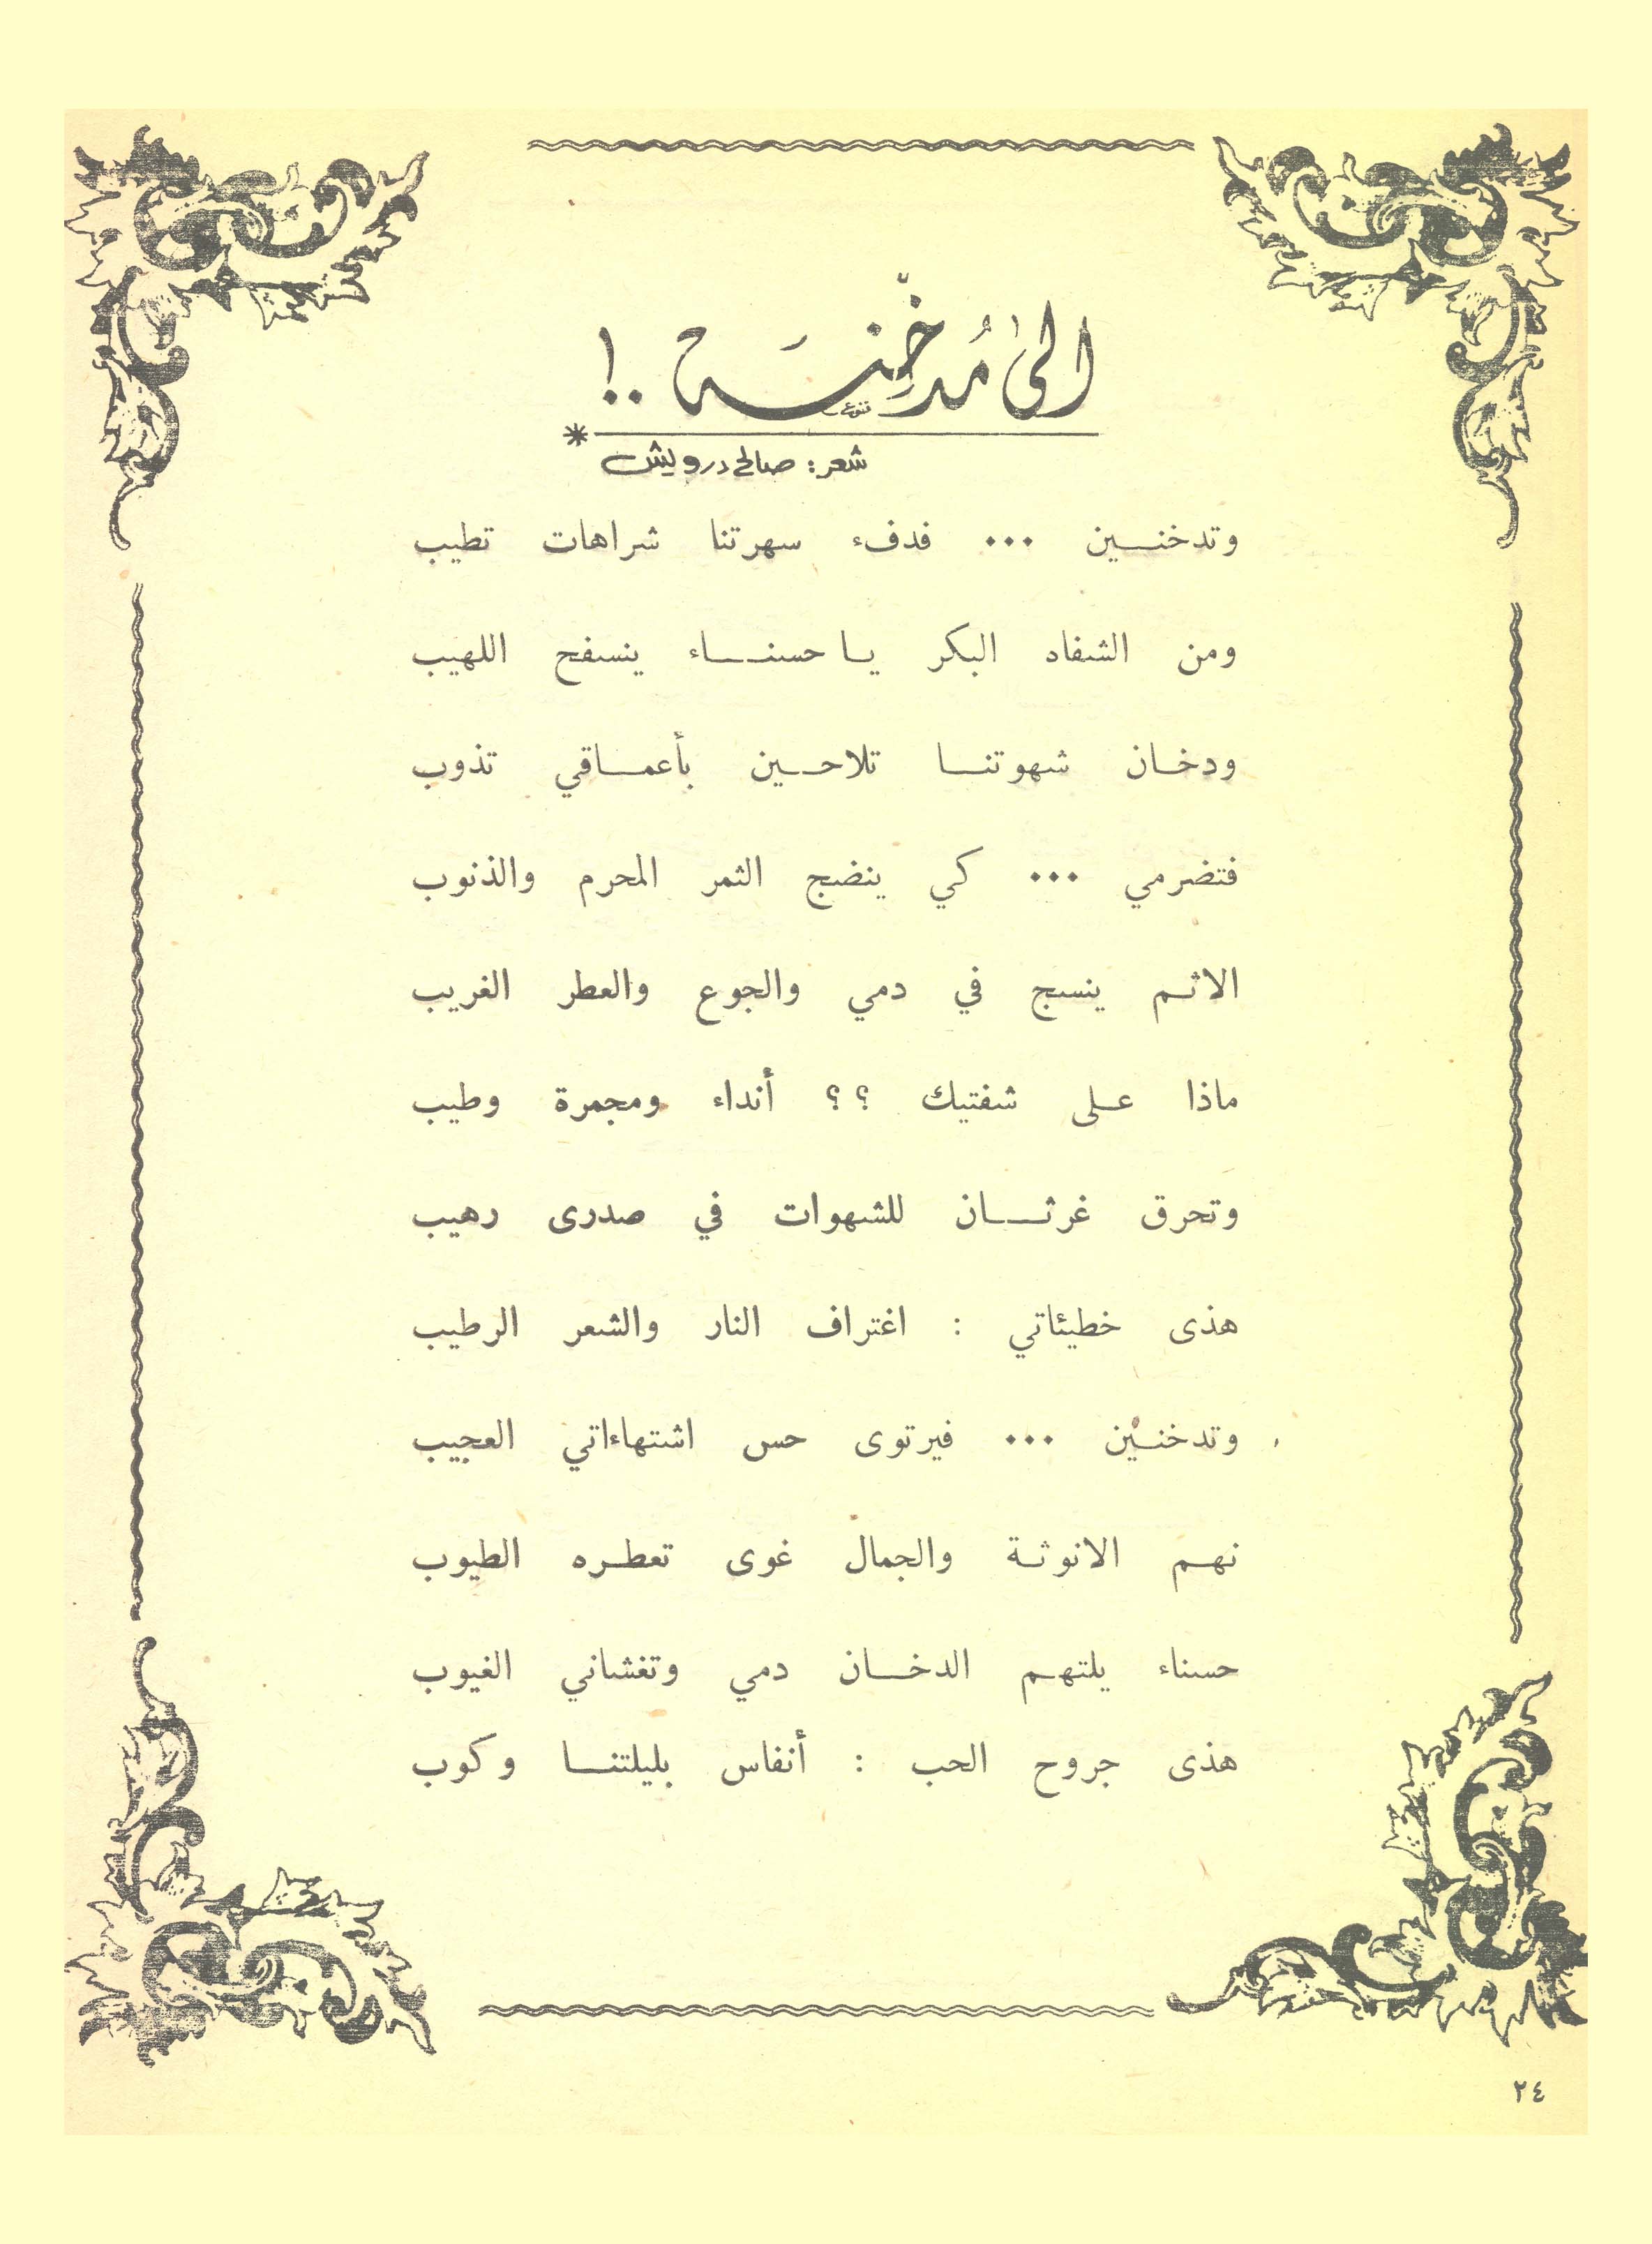 الى مُدخِّنَة ..!
شعر: صالح درويش
وتدخنين ... فدفء سهرتنا شراهات تطيب
ومن الشفاه البكر يا حسناء ينسفح اللهيب
ودخان شهوتنا تلاحين بأعماقي تذوب
فتضرمي ... كي ينضج الثمر المحرم والذنوب
الاثم ينسج في دمي والجوع والعطر الغريب
ماذا على شفتيك ؟؟ أنداء ومجمرة وطيب
وتحرق غرثان للشهوات في صدرى رهيب
هذى خطيئاتي : اغتراف النار والشعر الرطيب
وتدخنين ... فيرتوى حس اشتهاءاتي العجيب
نهم الانوثة والجمال غوى تعطره الطيوب
حسناء يلتهم الدخان دمي وتغشاني الغيوب
هذى جروح الحب : أنفاس بليلتنا وكوب
٢٤